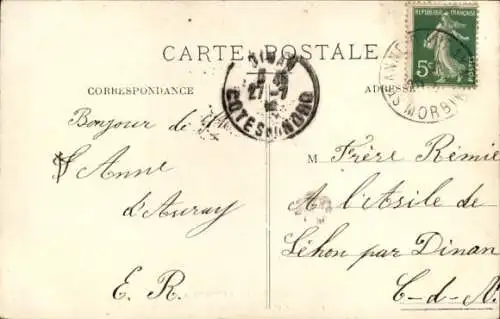 RÉPUBLIQUE FRANÇAISE
5c
POSTES
STE ANNE
MORBIHAN
CARTE POSTALE
DINAN
27-7
COTES DU NORD
CORRESPONDANCE
ADRESSE
Bonjour de Ste
S Anne
d'Auray
E. R.
M Frère Rémie
A l'Asile de
Léhon par Dinan
C-d-N.